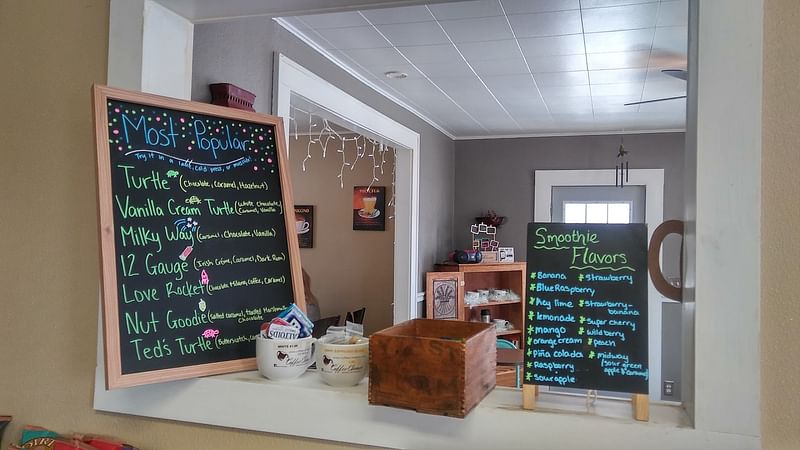 Most Popular
Try it in a latte, cold press, or mocha!
Turtle (Chocolate, Caramel, Hazelnut)
Vanilla Cream Turtle (White Chocolate, Caramel, Vanilla
Milky Way (Caramel, Chocolate, Vanilla)
12 Gauge (Irish Créme, Caramel, Dark Rum)
Love Rocket (Chocolate Milano, Coffee, Caramel)
Nut Goodie (Salted Caramel, Toasted Marshmallow, Chocolate
Ted's Turtle (Butterscotch,
ALTOIDS
Smoothie
Flavors
Banana
Blue Raspberry
key lime
lemonade
mango
orange cream
piña colada
Raspberry
sour apple
strawberry
strawberry-banana
super cherry
wild berry
peach
midway
(sour green apple & caramel)